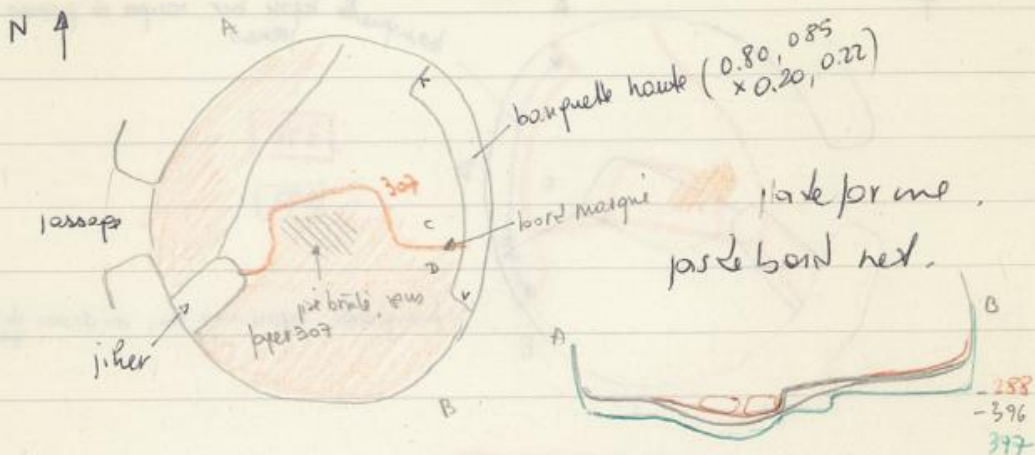 N
A
banquette haute (0.80, 0.85
× 0.20, 0.22)
307
passage
C
bord marqué
D
plateforme.
pas de bord net.
brûlé, sous
307
pilier
B
A
B
-288
-396
397